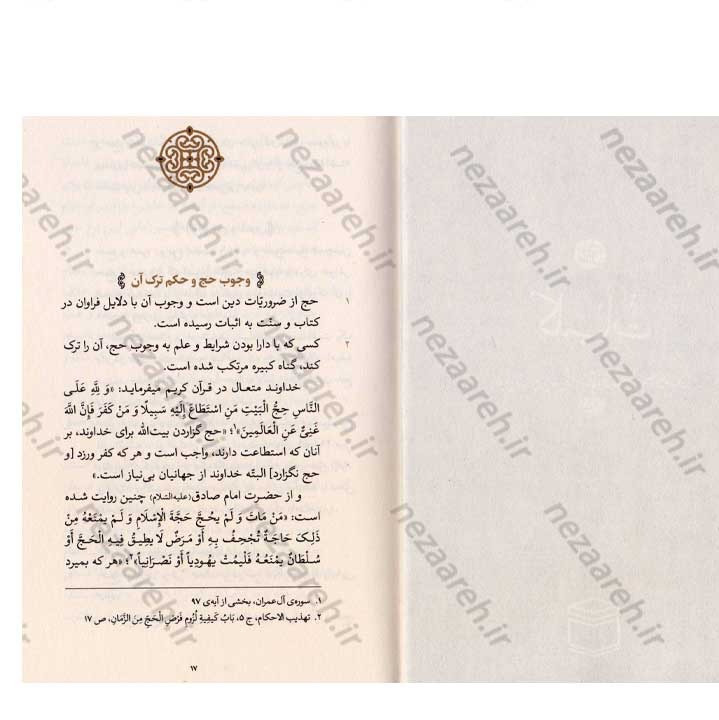 وجوب حج و حکم ترک آن
۱ حج از ضروریّات دین است و وجوب آن با دلایل فراوان در
کتاب و سنّت به اثبات رسیده است.
۲ کسی که با دارا بودن شرایط و علم به وجوب حج، آن را ترک
کند، گناه کبیره مرتکب شده است.
خداوند متعال در قرآن کریم میفرماید: «وَ لِلَّهِ عَلَی
النَّاسِ حِجُّ الْبَیْتِ مَنِ اسْتَطَاعَ إِلَیْهِ سَبِیلًا وَ مَنْ کَفَرَ فَإِنَّ اللَّهَ
غَنِیٌّ عَنِ الْعَالَمِینَ»۱؛ «حج گزاردن بیت‌الله برای خداوند، بر
آنان که استطاعت دارند، واجب است و هر که کفر ورزد [و
حج نگزارد] البتّه خداوند از جهانیان بی‌نیاز است.»
و از حضرت امام صادق(علیه‌السّلام) چنین روایت شده
است: «مَنْ مَاتَ وَ لَمْ یَحُجَّ حَجَّةَ الْإِسْلَامِ وَ لَمْ یَمْنَعْهُ مِنْ
ذَلِکَ حَاجَةٌ تُجْحِفُ بِهِ أَوْ مَرَضٌ لَا یُطِیقُ فِیهِ الْحَجَّ أَوْ
سُلْطَانٌ یَمْنَعُهُ فَلْیَمُتْ یَهُودِیاً أَوْ نَصْرَانِیاً»۲؛ «هر که بمیرد
۱. سوره‌ی آل‌عمران، بخشی از آیه‌ی ۹۷
۲. تهذیب الاحکام، ج ۵، بَابُ کَیفِیةِ لُزُومِ فَرْضِ الْحَجِّ مِنَ الزَّمَانِ، ص ۱۷
۱۷
nezaareh.ir
nezaareh.ir
nezaareh.ir
nezaareh.ir
nezaareh.ir
nezaareh.ir
nezaareh.ir
nezaareh.ir
nezaareh.ir
nezaareh.ir